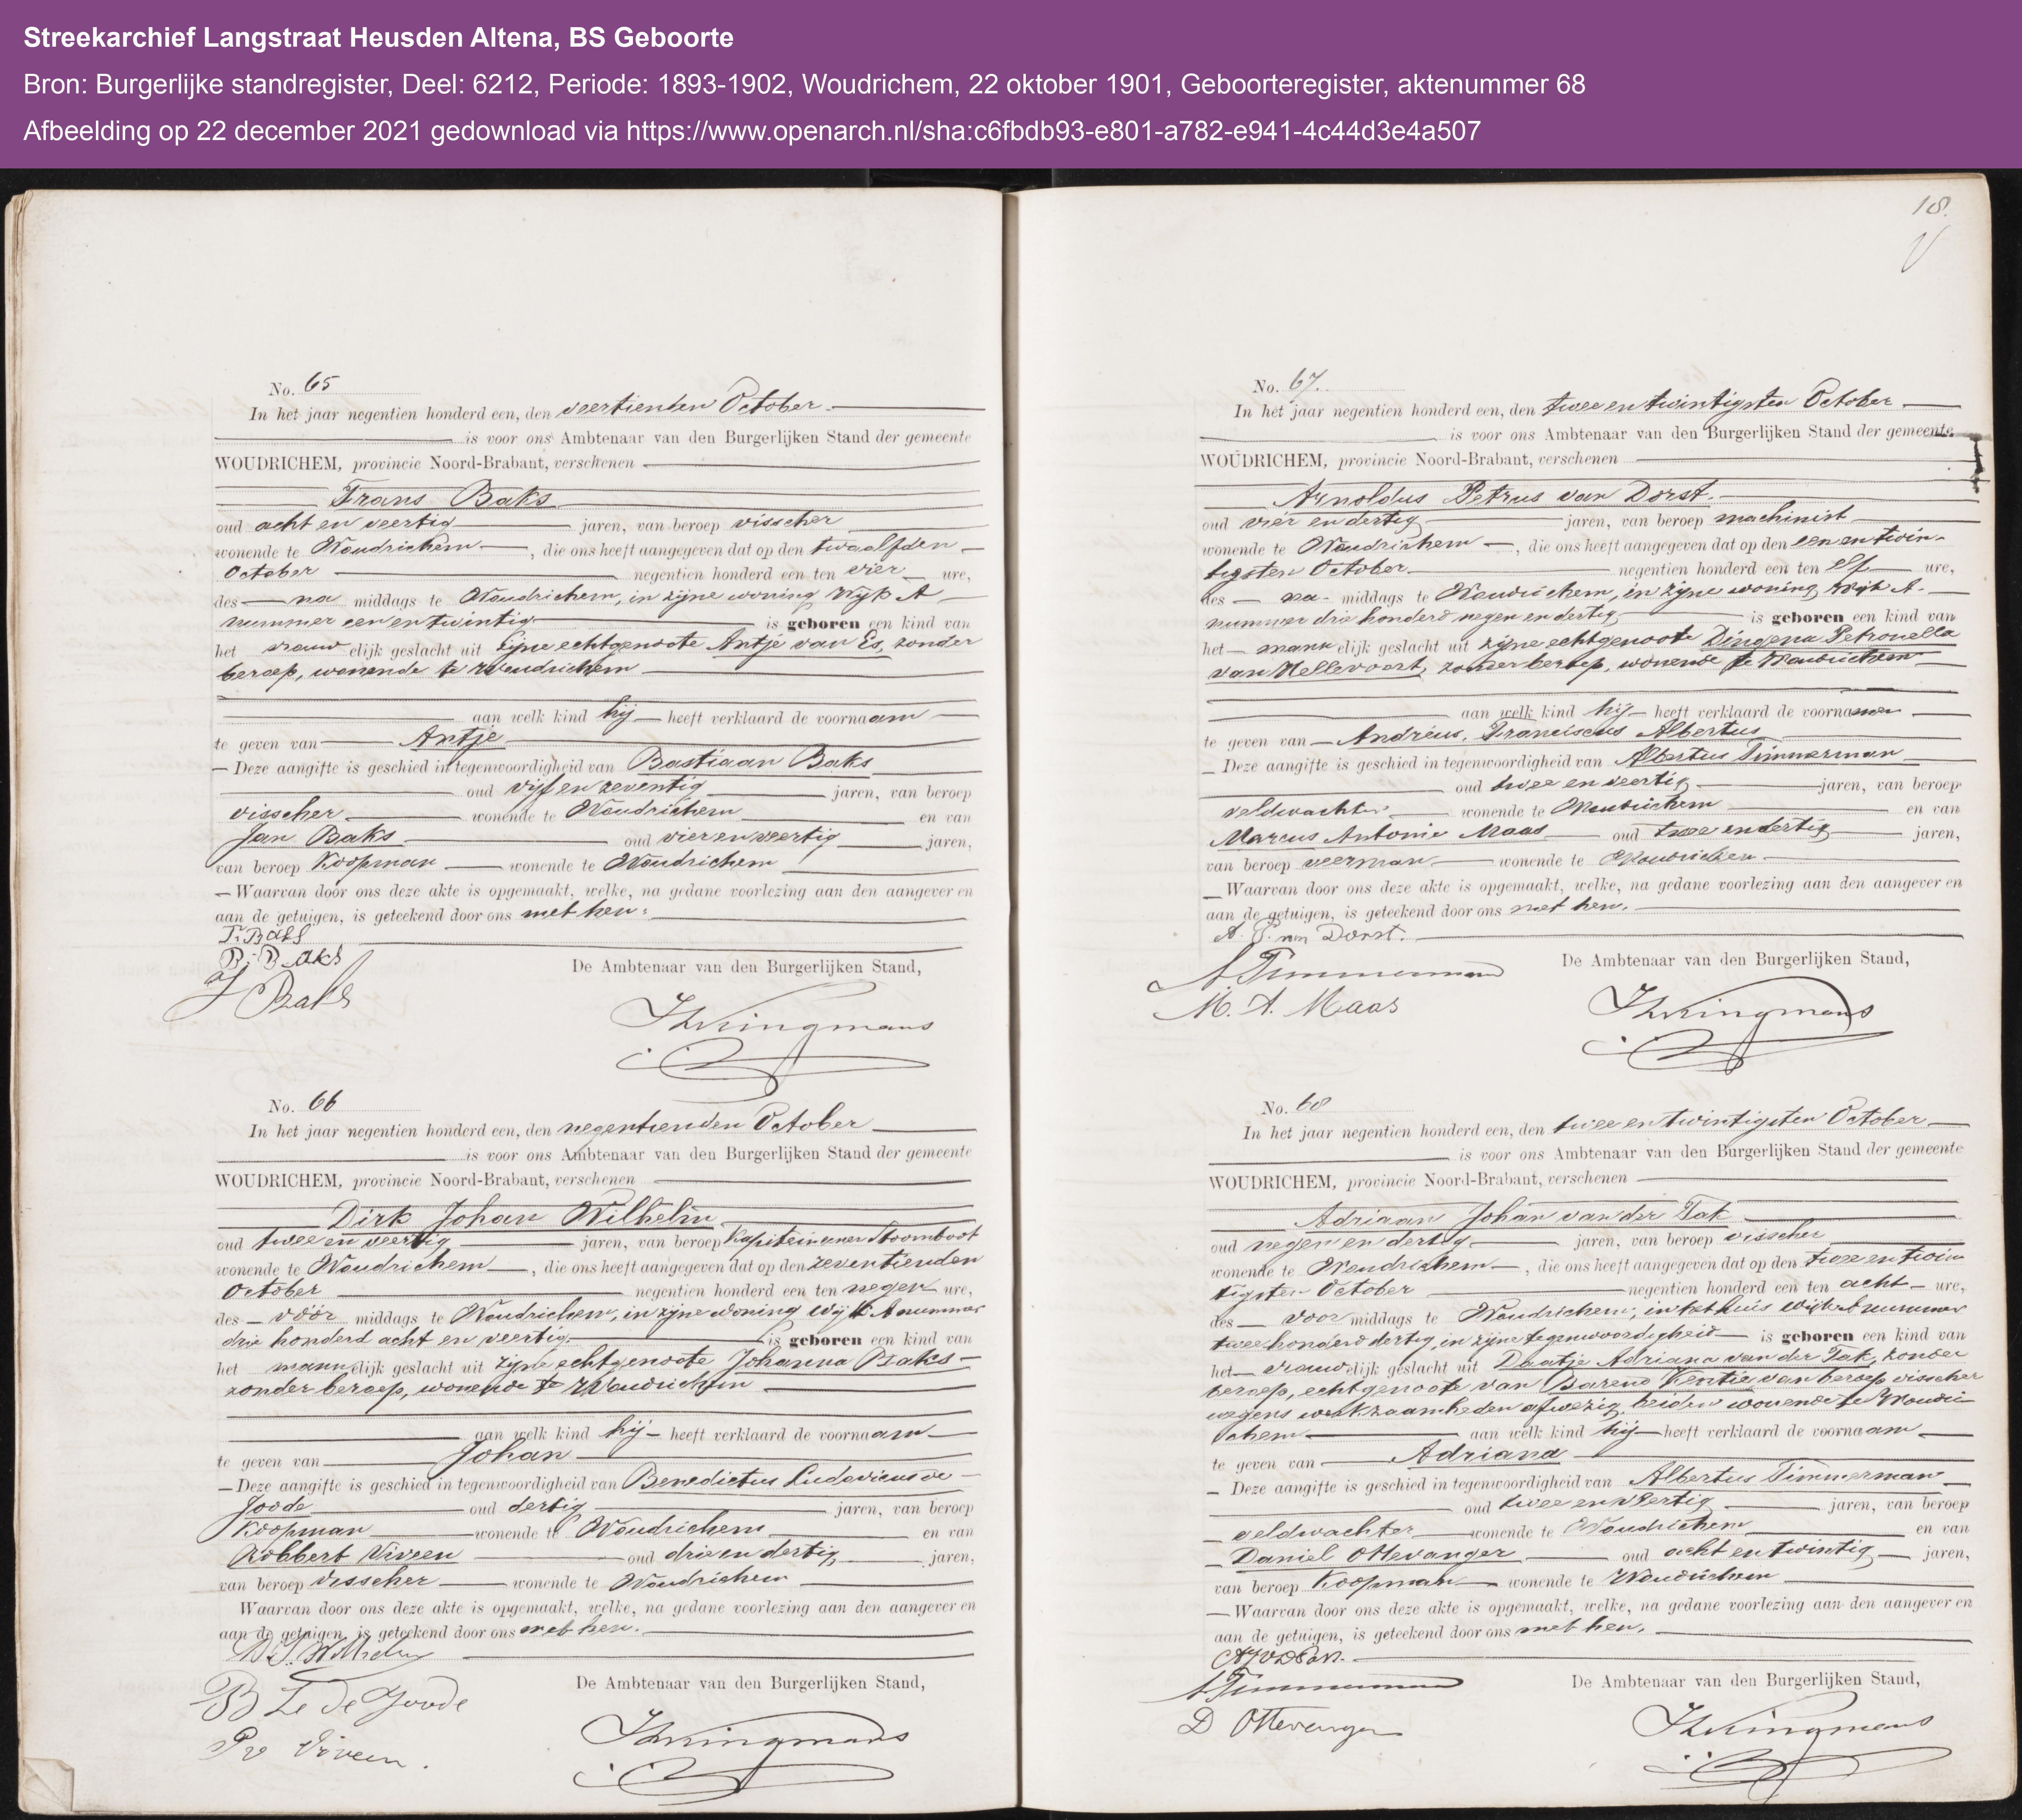 Streekarchief Langstraat Heusden Altena, BS Geboorte
Bron: Burgerlijke standregister, Deel: 6212, Periode: 1893-1902, Woudrichem, 22 oktober 1901, Geboorteregister, aktenummer 68
Afbeelding op 22 december 2021 gedownload via https://www.openarch.nl/sha:c6fbdb93-e801-a782-e941-4c44d3e4a507
No. 65
In het jaar negentien honderd een, den veertienden October
is voor ons Ambtenaar van den Burgerlijken Stand der gemeente
WOUDRICHEM, provincie Noord-Brabant, verschenen
Frans Baks
oud acht en veertig jaren, van beroep visscher
wonende te Woudrichem, die ons heeft aangegeven dat op den twaalfden
October negentien honderd een ten vier ure,
des na middags te Woudrichem, in zijne woning Wijk A
nummer een en twintig is geboren een kind van
het vrouwelijk geslacht uit zijne echtgenoote Antje van Es, zonder
beroep, wonende te Woudrichem
aan welk kind hij heeft verklaard de voornaam
te geven van Antje
Deze aangifte is geschied in tegenwoordigheid van Bastiaan Baks
oud vijf en zeventig jaren, van beroep
visscher wonende te Woudrichem en van
Jan Baks oud vier en veertig jaren,
van beroep Koopman wonende te Woudrichem
Waarvan door ons deze akte is opgemaakt, welke, na gedane voorlezing aan den aangever en
aan de getuigen, is geteekend door ons met hen.
F. Baks
B. Baks
J Baks
De Ambtenaar van den Burgerlijken Stand,
No. 66
In het jaar negentien honderd een, den negentienden October
is voor ons Ambtenaar van den Burgerlijken Stand der gemeente
WOUDRICHEM, provincie Noord-Brabant, verschenen
Dirk Johan Wilhelm
oud twee en veertig jaren, van beroep Kapitein eener Stoomboot
wonende te Woudrichem, die ons heeft aangegeven dat op den zeventienden
October negentien honderd een ten negen ure,
des vóór middags te Woudrichem, in zijne woning Wijk A nummer
drie honderd acht en veertig is geboren een kind van
het mannelijk geslacht uit zijne echtgenoote Johanna Baks
zonder beroep, wonende te Woudrichem
aan welk kind hij heeft verklaard de voornaam
te geven van Johan
Deze aangifte is geschied in tegenwoordigheid van Benedictus Ludovicus de
Joode oud dertig jaren, van beroep
Koopman wonende te Woudrichem en van
Robbert Viveen oud drie en dertig jaren,
van beroep visscher wonende te Woudrichem
Waarvan door ons deze akte is opgemaakt, welke, na gedane voorlezing aan den aangever en
aan de getuigen, is geteekend door ons met hen.
D J. Wilhelm
B L de Joode
Viveen.
De Ambtenaar van den Burgerlijken Stand,
18.
No. 67.
In het jaar negentien honderd een, den twee en twintigsten October
is voor ons Ambtenaar van den Burgerlijken Stand der gemeente
WOUDRICHEM, provincie Noord-Brabant, verschenen
Arnoldus Petrus van Dorst.
oud vier en dertig jaren, van beroep machinist
wonende te Woudrichem, die ons heeft aangegeven dat op den een en twin-
tigsten October negentien honderd een ten elf ure,
des na- middags te Woudrichem, in zijne woning wijk A.
nummer drie honderd negen en dertig is geboren een kind van
het mannelijk geslacht uit zijne echtgenoote Dingena Petronella
van Hellevoort, zonder beroep, wonende te Woudrichem
aan welk kind hij heeft verklaard de voornamen
te geven van Andreus, Franciscus Albertus
Deze aangifte is geschied in tegenwoordigheid van Albertus Timmerman
oud twee en veertig jaren, van beroep
veldwachter wonende te Woudrichem en van
Marcus Antonie Maas oud twee en dertig jaren,
van beroep veerman wonende te Woudrichem
Waarvan door ons deze akte is opgemaakt, welke, na gedane voorlezing aan den aangever en
aan de getuigen, is geteekend door ons met hen.
A. P. van Dorst.
A Timmerman
M. A. Maas
De Ambtenaar van den Burgerlijken Stand,
No. 68
In het jaar negentien honderd een, den twee en twintigsten October
is voor ons Ambtenaar van den Burgerlijken Stand der gemeente
WOUDRICHEM, provincie Noord-Brabant, verschenen
Adriaan Johan van der Tak
oud negen en dertig jaren, van beroep visscher
wonende te Woudrichem, die ons heeft aangegeven dat op den twee en twin
tigsten October negentien honderd een ten acht ure,
des voor middags te Woudrichem, in het huis wijk A nummer
twee honderd dertig, in zijne tegenwoordigheid is geboren een kind van
het vrouwelijk geslacht uit Daatje Adriana van der Tak, zonder
beroep, echtgenoote van Barend Kentie van beroep visscher
wegens werkzaamheden afwezig, beiden wonende te Woudri-
chem aan welk kind hij heeft verklaard de voornaam
te geven van Adriana
Deze aangifte is geschied in tegenwoordigheid van Albertus Timmerman
oud twee en veertig jaren, van beroep
veldwachter wonende te Woudrichem en van
Daniel Ottevanger oud acht en twintig jaren,
van beroep Koopman wonende te Woudrichem
Waarvan door ons deze akte is opgemaakt, welke, na gedane voorlezing aan den aangever en
aan de getuigen, is geteekend door ons met hen.
A Timmerman
D Ottevanger
De Ambtenaar van den Burgerlijken Stand,